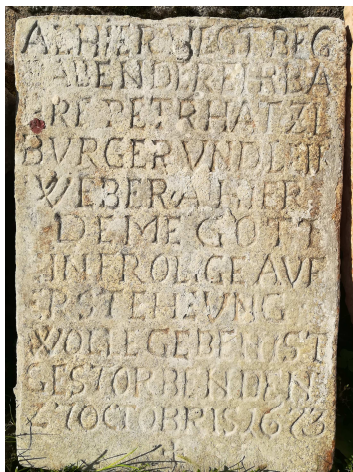 ALHIER LIEGT BEG
RABEN DER EHRBA
RE PETR HATZL
BVRGER VND LEIN
WEBER ALHIER
DEME GOTT
EIN FROLIGE AVF
ERSTEHUNG
WOLLE GEBEN IST
GESTORBEN DEN
OCTOBRIS 1673